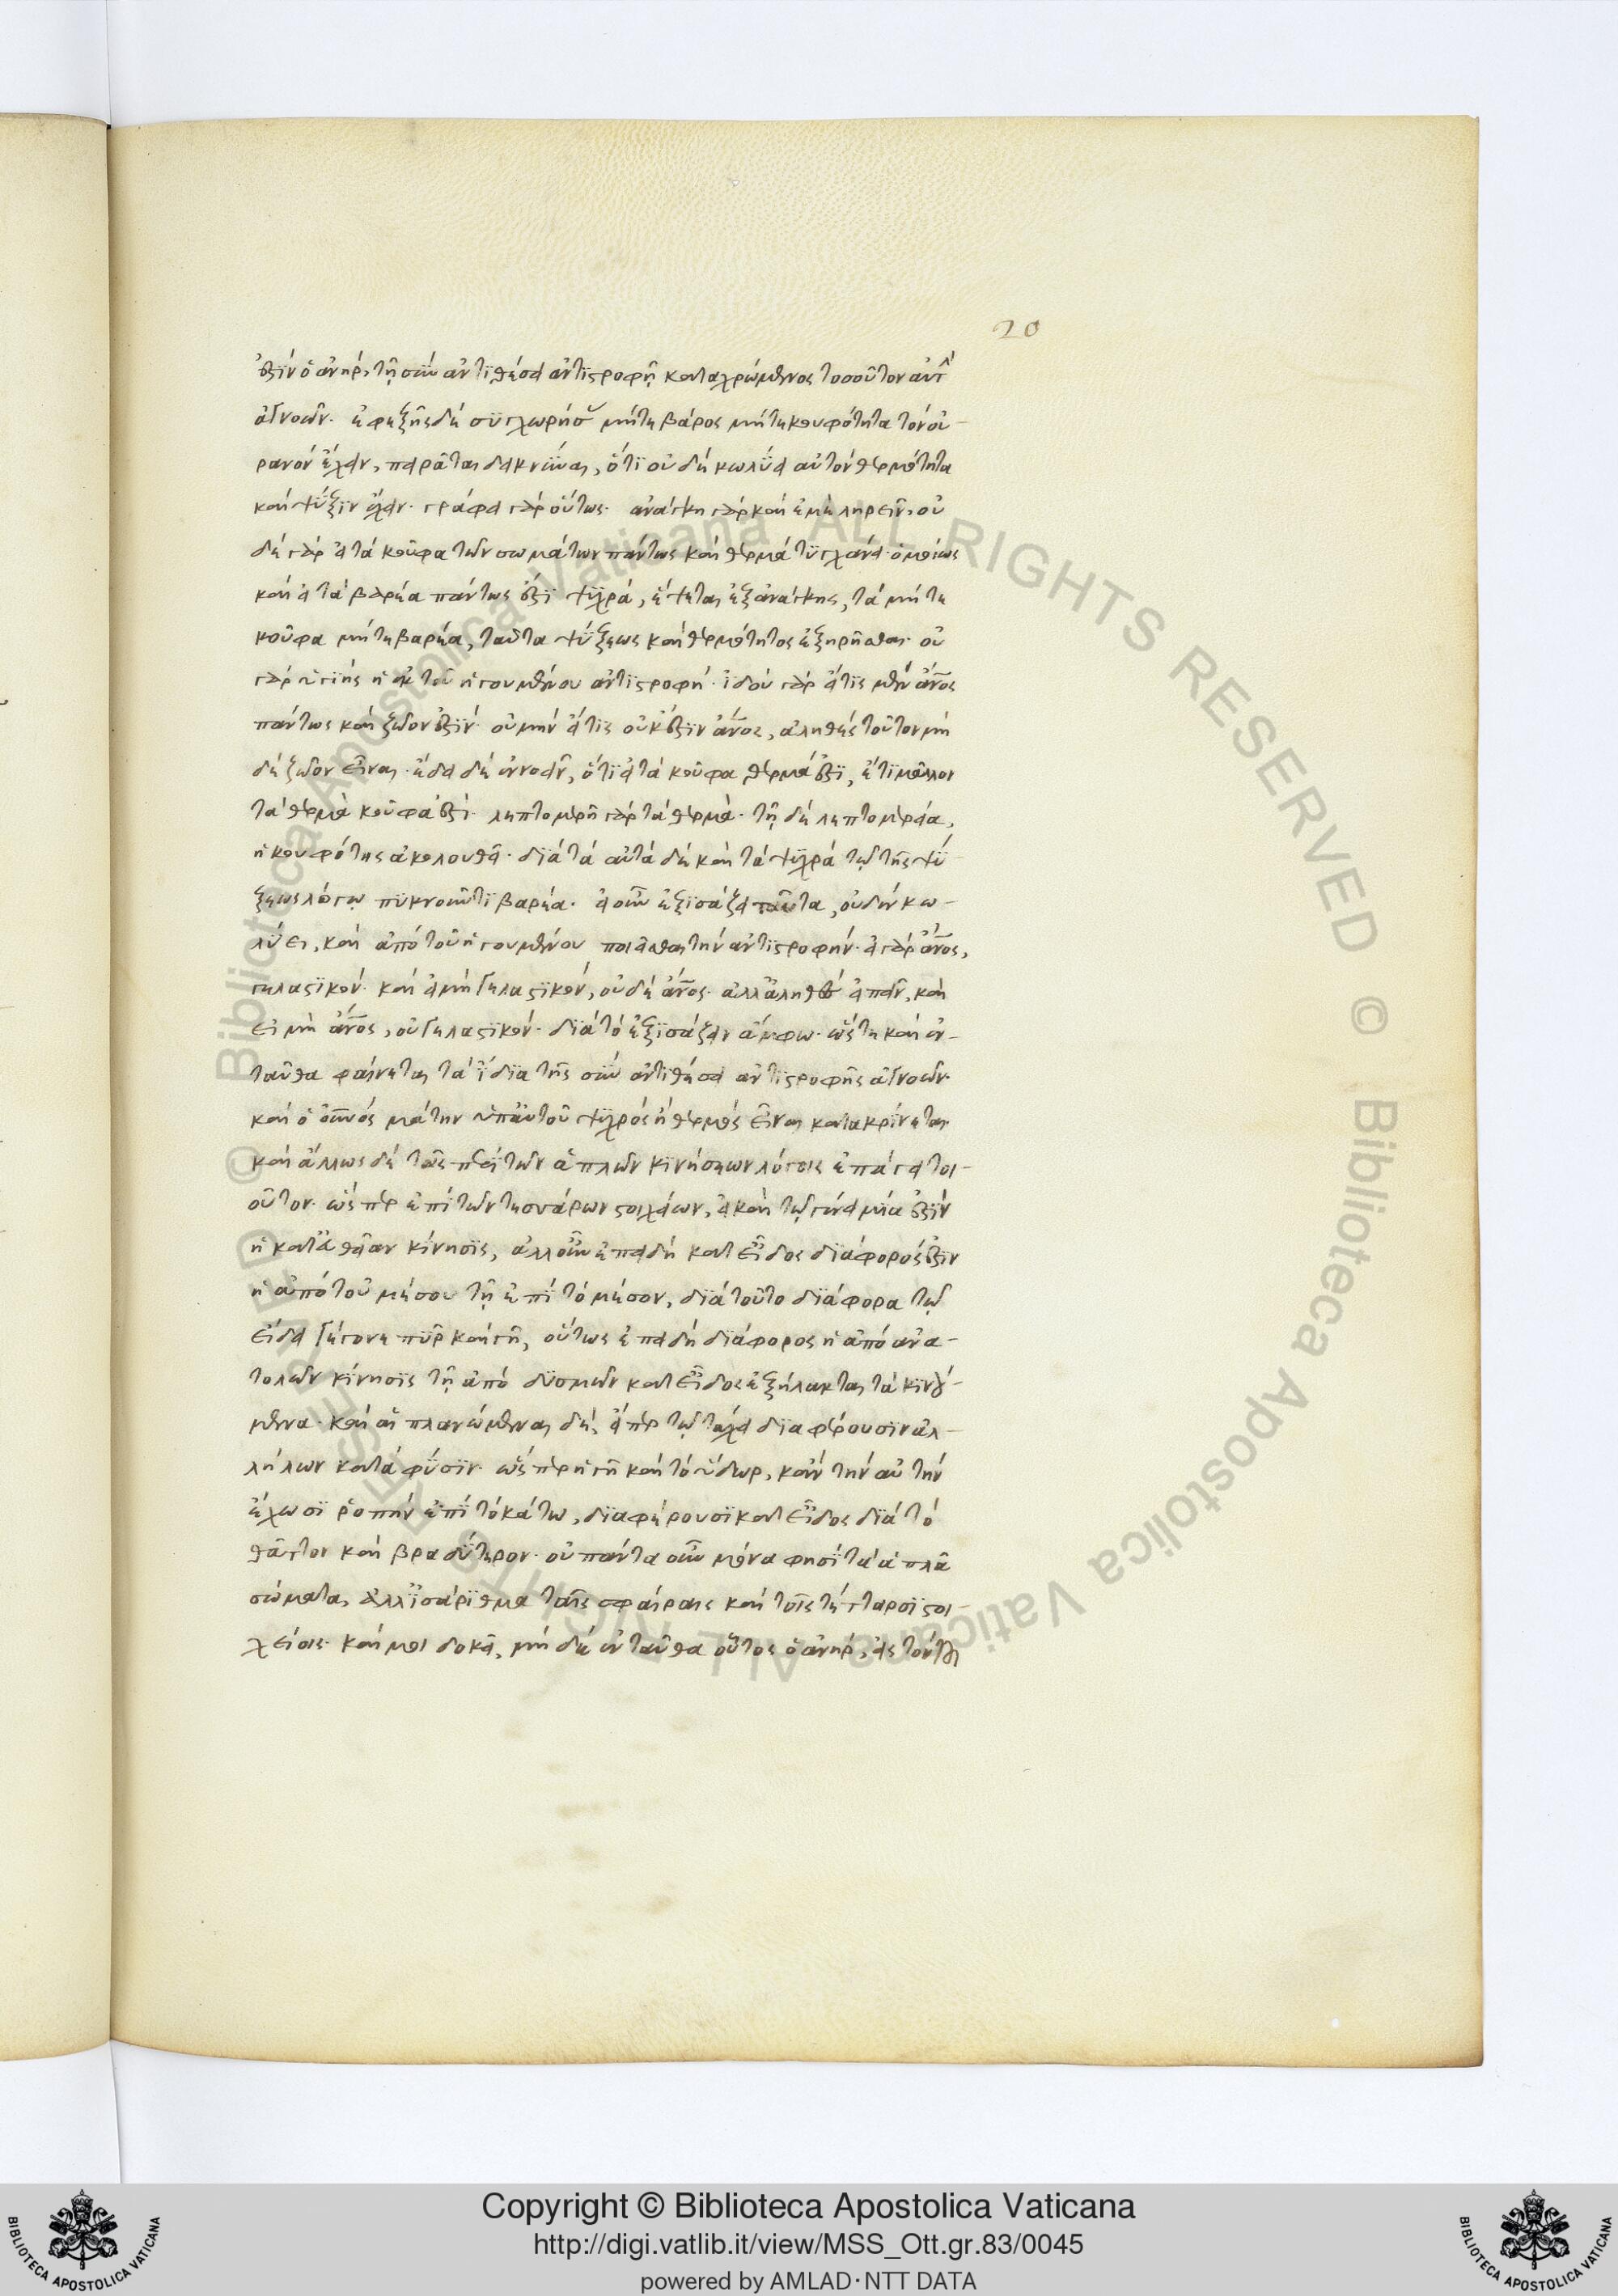 20
ἐστὶν ὁ ἀνήρ, τῇ σὺν ἀντιθέσει ἀντιστροφῇ καταχρώμενος τοσοῦτον αὐτὴν
ἀγνοῶν. ἐφεξῆς δὲ συγχωρήσας μήτε βάρος μήτε κουφότητα τὸν οὐ-
ρανὸν ἔχειν, πειρᾶται δεικνύναι, ὅτι οὐδὲν κωλύει αὐτὸν θερμότητα
καὶ ψύξιν ἔχειν. γράφει γὰρ οὕτως. ἀνάγκη γὰρ καὶ ἐμὲ ληρεῖν, οὐ
δὲ γὰρ εἰ τὰ κοῦφα τῶν σωμάτων πάντως καὶ θερμὰ τυγχάνει. ὁμοίως
καὶ εἰ τὰ βαρέα πάντως ἐστὶ ψυχρά, ἕψεται ἐξ ἀνάγκης, τὰ μήτε
κοῦφα μήτε βαρέα, ταῦτα ψύξεως καὶ θερμότητος ἐξῃρῆσθαι. οὐ
γὰρ ὑγιὴς ἡ ἐκ τοῦ ἡγουμένου ἀντιστροφή. ἰδοὺ γὰρ εἴ τις μὲν ἄνος
πάντως καὶ ζῶον ἐστίν. οὐ μὴν εἴ τις οὐκ ἔστιν ἄνος, ἀληθὲς τοῦτον μη
δὲ ζῶον εἶναι. ἔδει δὲ ἐννοεῖν, ὅτι εἰ τὰ κοῦφα θερμά ἐστι, ἔτι μᾶλλον
τὰ θερμὰ κοῦφά ἐστι. λεπτομερῆ γὰρ τὰ θερμά. τῇ δὲ λεπτομερείᾳ,
ἡ κουφότης ἀκολουθεῖ. διὰ τὰ αὐτὰ δὲ καὶ τὰ ψυχρὰ τῷ τῆς ψύ-
ξεως λόγῳ πυκνοῦντι βαρέα. εἰ οὖν ἐξισάζει ταῦτα, οὐδὲν κω-
λύει, καὶ ἀπὸ τοῦ ἡγουμένου ποιεῖσθαι τὴν ἀντιστροφήν. εἰ γὰρ ἄνος,
γελαστικόν. καὶ εἰ μὴ γελαστικόν, οὐδὲ ἄνος. ἀλλ' ἀληθὲς εἰπεῖν, καὶ
εἰ μὴ ἄνος, οὐ γελαστικόν. διὰ τὸ ἐξισάζειν ἄμφω. ὥστε καὶ ἐν-
ταῦθα φαίνεται τὰ ἴδια τῆς σὺν ἀντιθέσει ἀντιστροφῆς ἀγνοῶν.
καὶ ὁ οὐνὸς μάτην ὑπ' αὐτοῦ ψυχρὸς ἢ θερμὸς εἶναι κατακρίνεται.
καὶ ἄλλως δὲ τοῖς περὶ τῶν ἁπλῶν κινήσεων λόγοις ἐπάγει τοι-
οῦτον. ὥσπερ ἐπὶ τῶν τεσσάρων στοιχείων, εἰ καὶ τῷ γένει μία ἐστὶν
ἡ κατ' εὐθεῖαν κίνησις, ἀλλ' οὖν ἐπειδὴ κατ' εἶδος διάφορός ἐστιν
ἡ ἀπὸ τοῦ μέσου τῇ ἐπὶ τὸ μέσον, διὰ τοῦτο διάφορα τῷ
εἴδει γέγονε πῦρ καὶ γῆ, οὕτως ἐπειδὴ διάφορος ἡ ἀπὸ ἀνα-
τολῶν κίνησις τῇ ἀπὸ δυσμῶν κατ' εἶδος ἐξήλακται τὰ κινού-
μενα. καὶ αἱ πλανώμεναι δὲ, εἴπερ τῷ τάχει διαφέρουσιν ἀλ-
λήλων κατὰ φύσιν. ὥσπερ ἡ γῆ καὶ τὸ ὕδωρ, κἂν τὴν αὐτὴν
ἔχωσι ῥοπὴν ἐπὶ τὸ κάτω, διαφέρουσι κατ' εἶδος διὰ τὸ
θᾶττον καὶ βραδύτερον. οὐ πάντα οὖν μόνα φησὶ τὰ ἁπλᾶ
σώματα, ἀλλ' ἰσάριθμα ταῖς σφαίραις καὶ τοῖς τέτταρσι στοι-
χείοις. καί μοι δοκεῖ, μὴ δὲ ἐνταῦθα οὗτος ὁ ἀνήρ, εἰς τὸν
© Biblioteca Apostolica Vaticana ALL RIGHTS RESERVED © Biblioteca Apostolica Vaticana ALL RIGHTS RESERVED
Copyright © Biblioteca Apostolica Vaticana
http://digi.vatlib.it/view/MSS_Ott.gr.83/0045
powered by AMLAD·NTT DATA
BIBLIOTECA APOSTOLICA VATICANA
BIBLIOTECA APOSTOLICA VATICANA